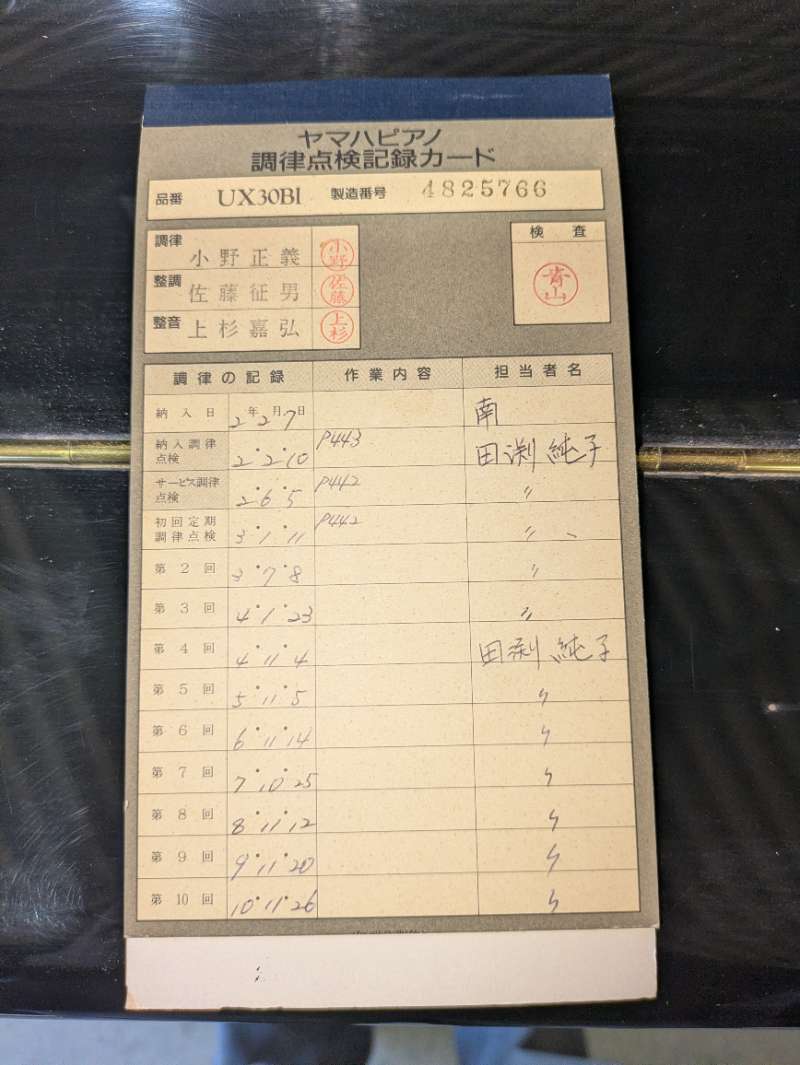 ヤマハピアノ
調律点検記録カード
品番 UX30BI 製造番号 4825766
調律 小野正義 小野
整調 佐藤征男 佐藤
整音 上杉嘉弘 上杉
検査
青山
調律の記録 作業内容 担当者名
納入日 2年2月7日 南
納入調律点検 2・2・10 P443 田渕純子
サービス調律点検 2・6・5 P442 〃
初回定期調律点検 3・1・11 P442 〃
第2回 3・7・8 〃
第3回 4・1・23 〃
第4回 4・11・4 田渕純子
第5回 5・11・5 〃
第6回 6・11・14 〃
第7回 7・10・25 〃
第8回 8・11・12 〃
第9回 9・11・20 〃
第10回 10・11・26 〃